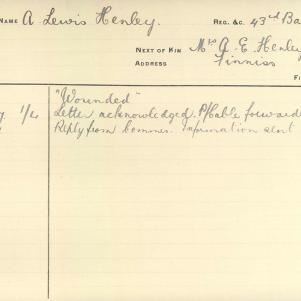 NAME A Lewis Henley. REG. &C. 43rd Ba
NEXT OF KIN Mrs A. E. Henley
ADDRESS Finniss
F
"Wounded"
1/4 Letter acknowledged. P/Cable forwarde
Reply from Commr. Information sent